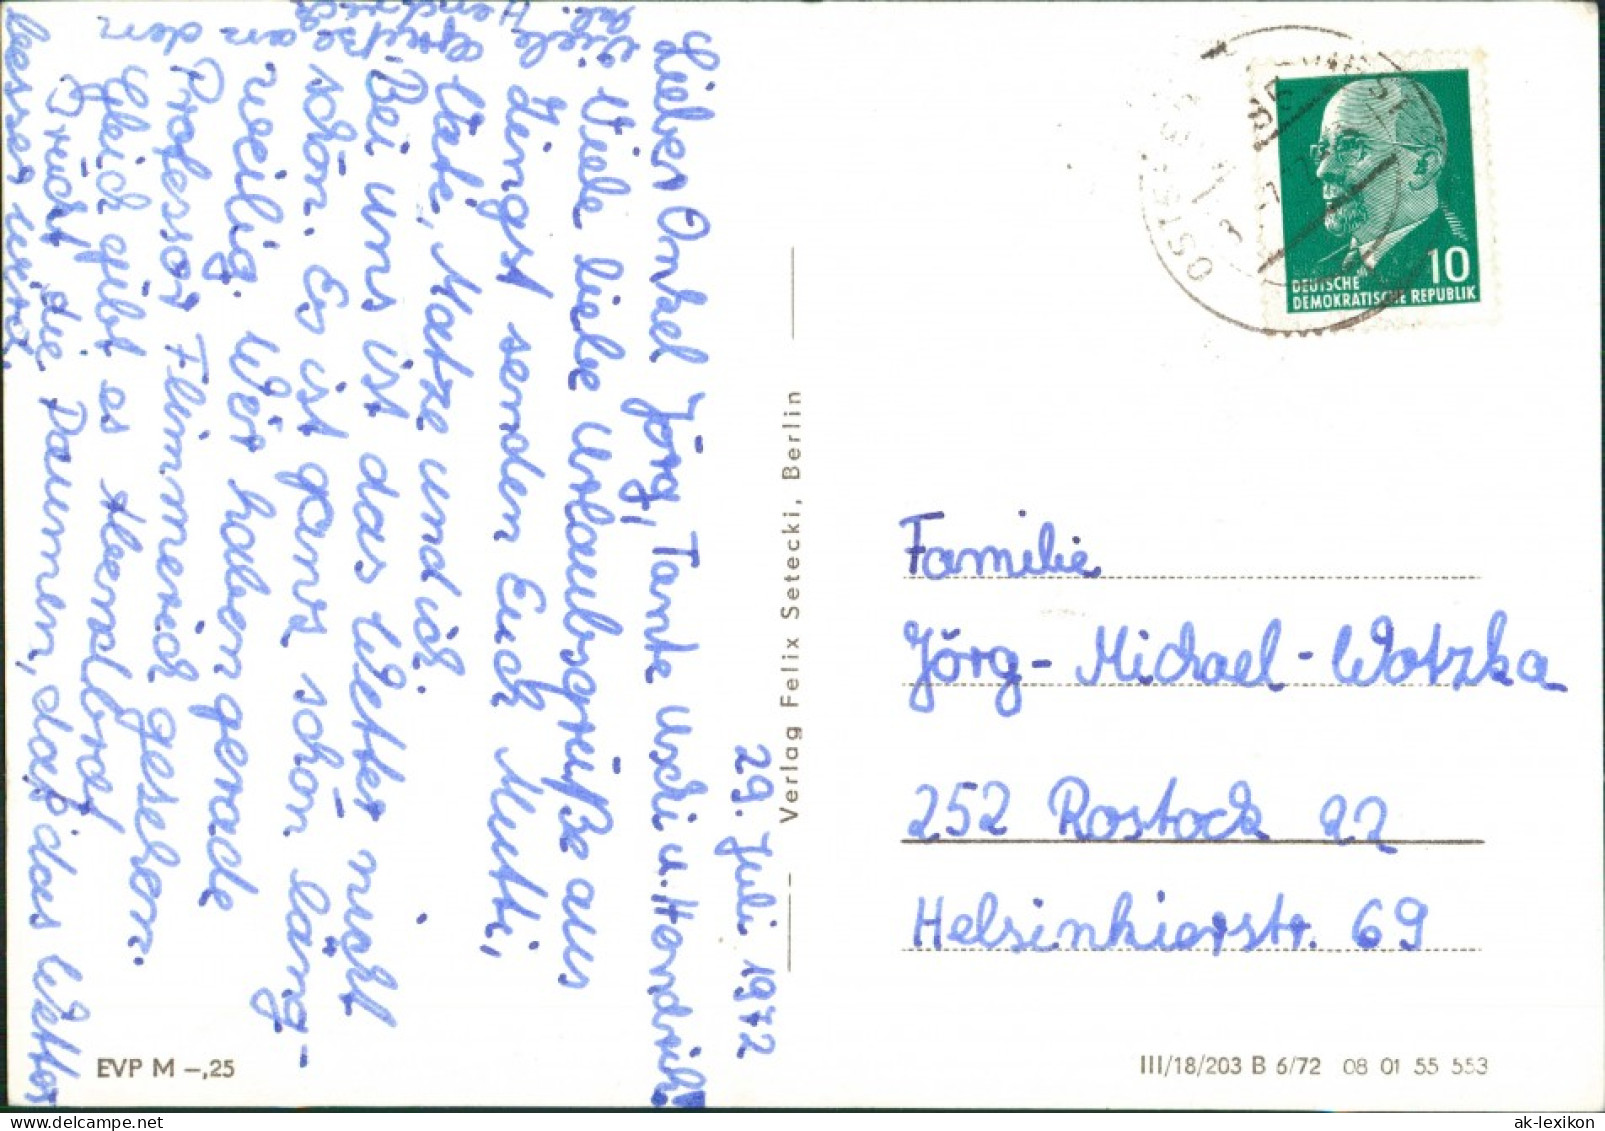 29. Juli 1972
Lieber Onkel Jörg, Tante Uschi u. Hendrik!
Viele liebe Urlaubsgrüße aus
Zingst senden Euch Mutti,
Vati, Matze und ich.
Bei uns ist das Wetter nicht
schön. Es ist ganz schön lang-
weilig. Wir haben gerade
Professor Flimmerich gesehen.
Gleich gibt es Abendbrot.
Drückt die Daumen, daß das Wetter
besser wird.
Viele Grüße an den
Verlag Felix Setecki, Berlin
EVP M –,25
10
DEUTSCHE
DEMOKRATISCHE REPUBLIK
Familie
Jörg-Michael-Watzka
252 Rostock 22
Helsinkierstr. 69
III/18/203 B 6/72 08 01 55 553
ak-lexikon